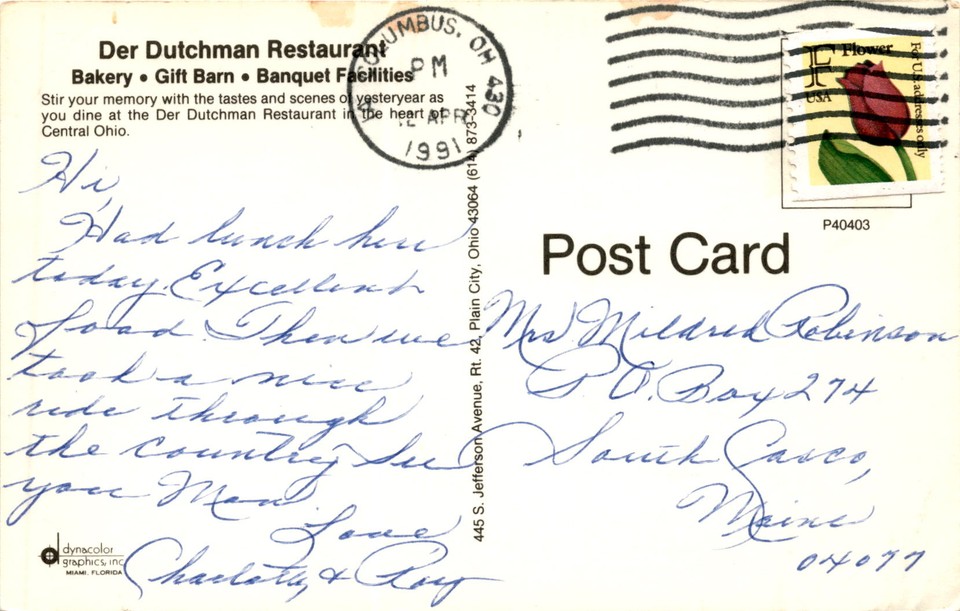 Der Dutchman Restaurant
Bakery • Gift Barn • Banquet Facilities
Stir your memory with the tastes and scenes of yesteryear as
you dine at the Der Dutchman Restaurant in the heart of
Central Ohio.
COLUMBUS, OH 430
PM
12 APR
1991
F Flower
USA
For U.S. addresses only
P40403
Post Card
445 S. Jefferson Avenue, Rt. 42, Plain City, Ohio 43064 (614) 873-3414
Hi,
Had lunch here
today. Excellent
food. Then we
took a nice
ride through
the country. See
you Mon.
Love
Charlotte & Roy
Mrs Mildred Robinson
P.O. Box 274
South Casco,
Maine
04077
dynacolor
graphics, inc.
MIAMI, FLORIDA